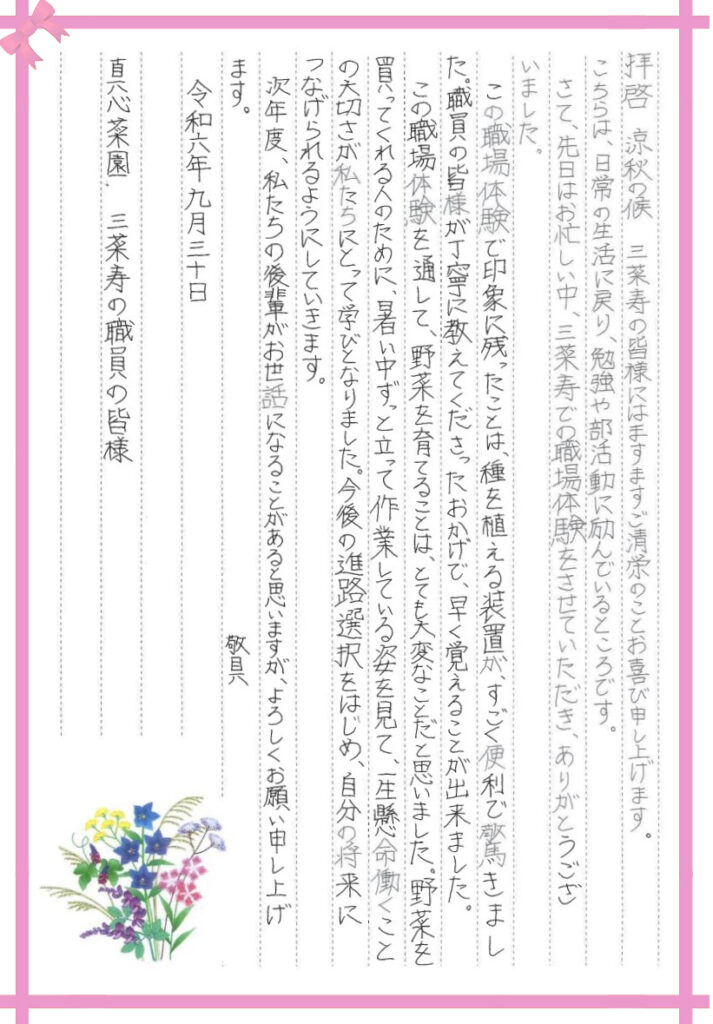 拝啓　涼秋の候　三菜寿の皆様にはますますご清栄のことお喜び申し上げます。
こちらは、日常の生活に戻り、勉強や部活動に励んでいるところです。
さて、先日はお忙しい中、三菜寿での職場体験をさせていただき、ありがとうござ
いました。
この職場体験で印象に残ったことは、種を植える装置が、すごく便利で驚きまし
た。職員の皆様が丁寧に教えてくださったおかげで、早く覚えることが出来ました。
この職場体験を通して、野菜を育てることは、とても大変なことだと思いました。野菜を
買ってくれる人のために、暑い中ずっと立って作業している姿を見て、一生懸命働くこと
の大切さが私たちにとって学びとなりました。今後の進路選択をはじめ、自分の将来に
つなげられるようにしていきます。
次年度、私たちの後輩がお世話になることがあると思いますが、よろしくお願い申し上げ
ます。
敬具
令和六年九月三十日
真心菜園　三菜寿の職員の皆様